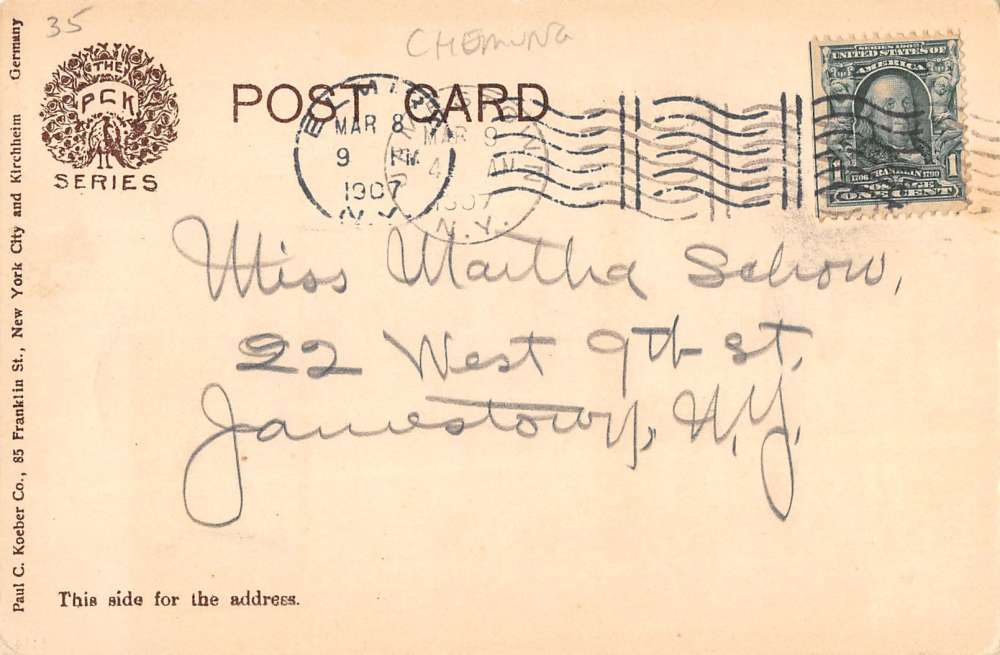 35
CHEMUNG
THE
PCK
SERIES
POST CARD
ELMIRA
MAR 8
9 PM
1907
N.Y.
MAR 9
4 AM
1907
N.Y.
SERIES 1902
UNITED STATES OF
AMERICA
1 1
1706 FRANKLIN 1790
POSTAGE
ONE CENT
Miss Martha Schow,
22 West 9th St.
Jamestown, N.Y.
This side for the address.
Paul C. Koeber Co., 85 Franklin St., New York City and Kirchheim Germany